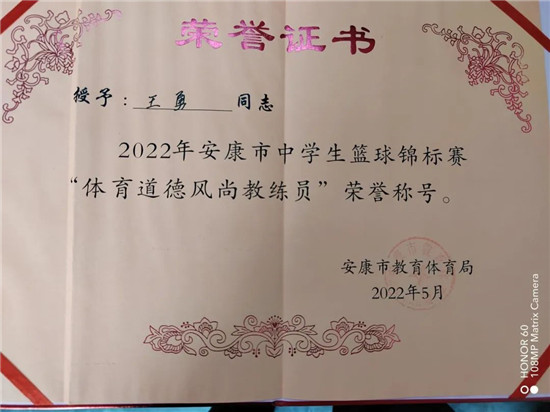 荣誉证书
授予：王勇 同志
2022年安康市中学生篮球锦标赛
“体育道德风尚教练员”荣誉称号。
安康市教育体育局
2022年5月
HONOR 60
108MP Matrix Camera